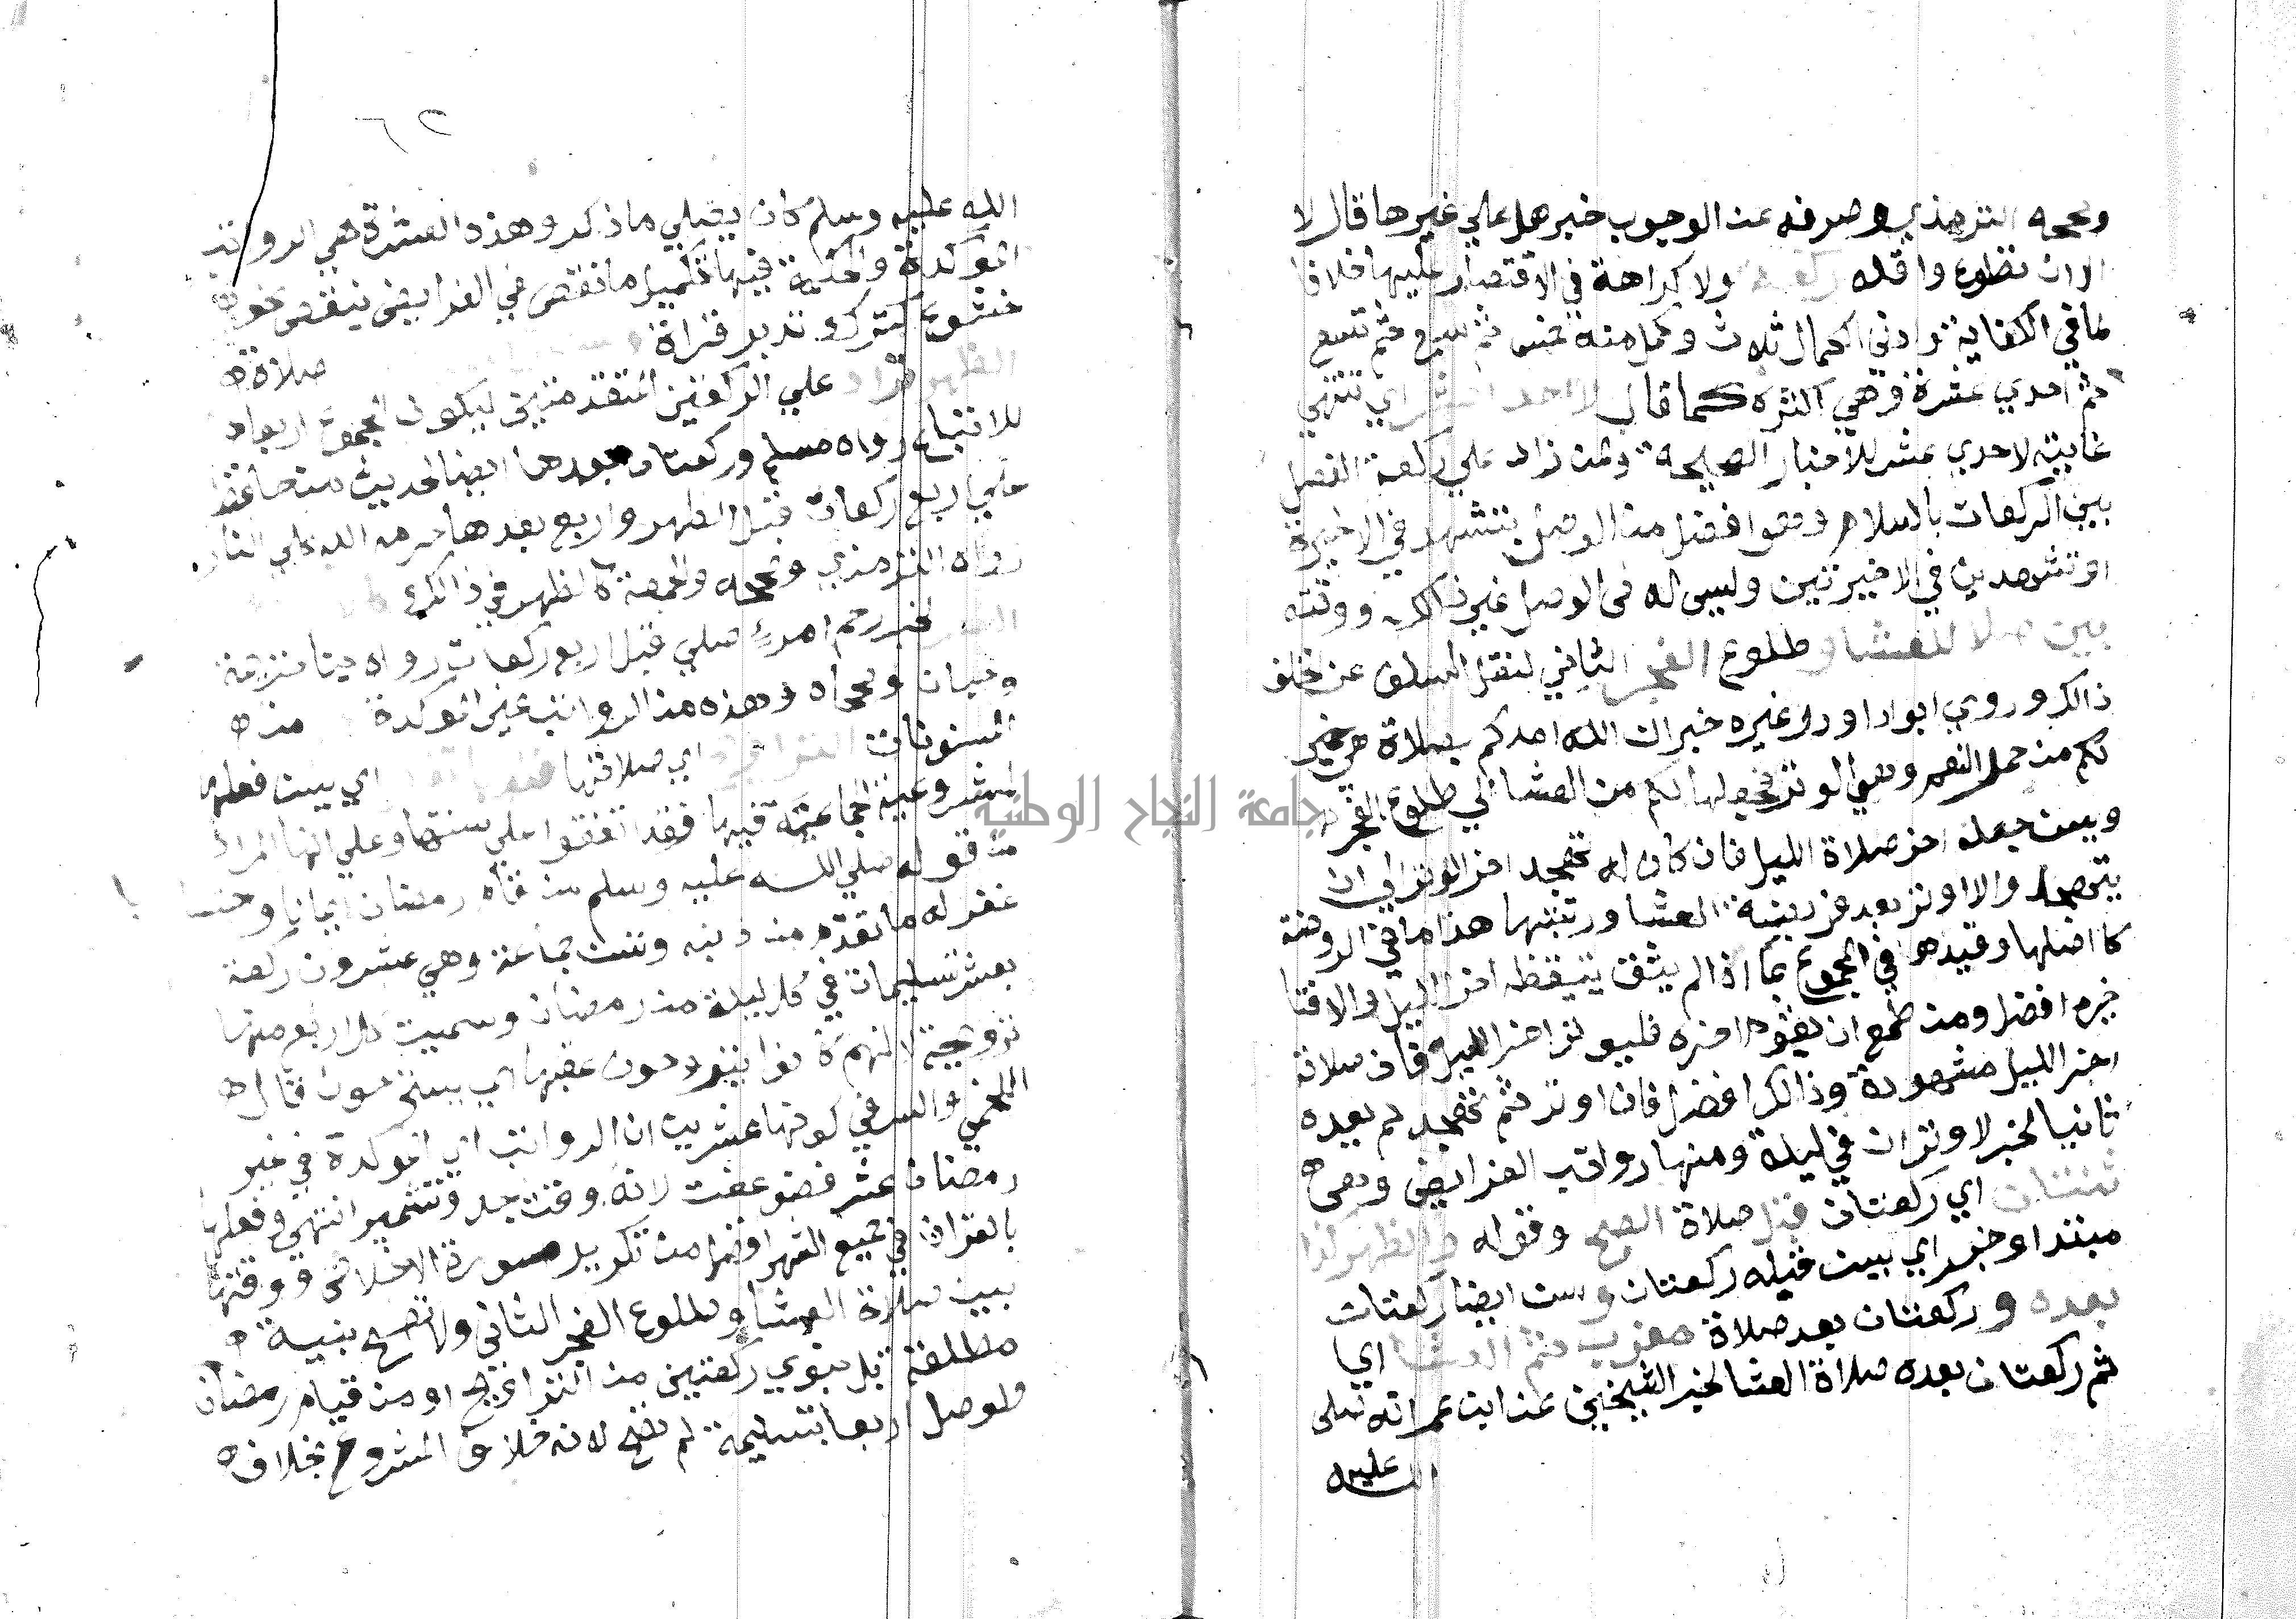 وصححه الترمذي وصرفه عن الوجوب خبر هل علي غيرها قال لا
الا ان تطوع واقله ركعة ولا كراهة في الاقتصار عليها خلافا
لما في الكفاية وادني الكمال ثلاث وكمل منه خمس ثم سبع ثم تسع
ثم احدي عشرة وهي اكثره كما قال لاحد اي تنتهي
غايته لاحدي عشر للاخبار الصحيحة ولمن زاد علي ركعة الفصل
بين الركعات بالسلام وهوا فضل من الوصل بتشهد في الاخيرة
او تشهدين في الاخيرتين وليس له في الوصل غير ذالك ووقته
بين صلا للعشا وطلوع الفجر الثاني لنقل السلف عن الخلف
ذالك وروي ابوداود وغيره خبر ان الله امدكم بصلاة هي خير
لكم من حمر النعم وهي الوتر فجعلها لكم من العشا الي طلوع الفجر
ويسن جعله اخر صلاة الليل فان كان له تهجد اخر الوتر الي ان
يتهجد والا اوتر بعد فريضة العشا ورتبتها هذا ما في الروضة
كاصلها وقيده في المجموع بما اذا لم يثق بتيقظه اخر الليل والا فتا
خيره افضل ومن طمع ان يقوم اخره فليوتر اخر الليل فان صلاة
اخر الليل مشهودة وذالك افضل فان اوتر ثم تهجد لم يعده
ثانيا لخبر لا وتران في ليلة ومنها رواتب الفرايض وهي
ثنتان اي ركعتان قبل صلاة الصبح وقوله والظهر كذا
مبتدا وخبر اي يسن قبله ركعتان وسن ايضا ركعتان
بعده وركعتان بعد صلاة مغرب ثم العشا اي
ثم ركعتان بعده صلاة العشا لخبر الشيخين عن ابن عمر انه صلي
الله عليه
الله عليه وسلم كان يصلي ما ذكر وهذه العشرة هي الرواتب
الموكدة والحكمة فيها تكميل ما نقص في الفرايض بنقص نحو
خشوع كترك تدبر قراة
الظهر تزاد علي الركعتين المتقدمتين ليكون المجموع اربعا صلاة
للاتباع رواه مسلم وركعتان بعدها ايضا لحديث من حافظ
علي اربع ركعات قبل الظهر واربع بعدها حرمه الله علي النار
رواه الترمذي وصححه والجمعة كالظهر في ذالك
لخبر رحم امرء صلي قبل اربع ركعات رواه
وحبان وصححاه وهذه من الرواتب غير الموكدة من
المسنونات التراويح اي صلاتها اي يسن فعلها
لمشروعية الجماعة فيها فقد اتفقوا علي سنتها وعلي انها المراد
من قوله صلي الله عليه وسلم من قام رمضان ايمانا واحتسا
غفر له ما تقدم من ذنبه وتسن جماعة وهي عشرون ركعة
بعشر تسليمات في كل ليلة من رمضان وسميت كل اربع منها
ترويحة لانهم كانوا يتروحون عقبها اي يستريحون قال
الحليمي والسر في كونها عشرين ان الرواتب اي الموكدة في غير
رمضان عشر فضوعفت لانه وقت جد وتشمير انتهي وفعلها
بالقران في جميع الشهر افضل من تكرير سورة الاخلاص ووقتها
بين صلاة العشا وطلوع الفجر الثاني ولا تصح بنية
مطلقة بل ينوي ركعتين من التراويح او من قيام رمضان
ولوصل اربعا بتسليمة لم تصح لانه خلاف المشروع بخلاف
جامعة النجاح الوطنية